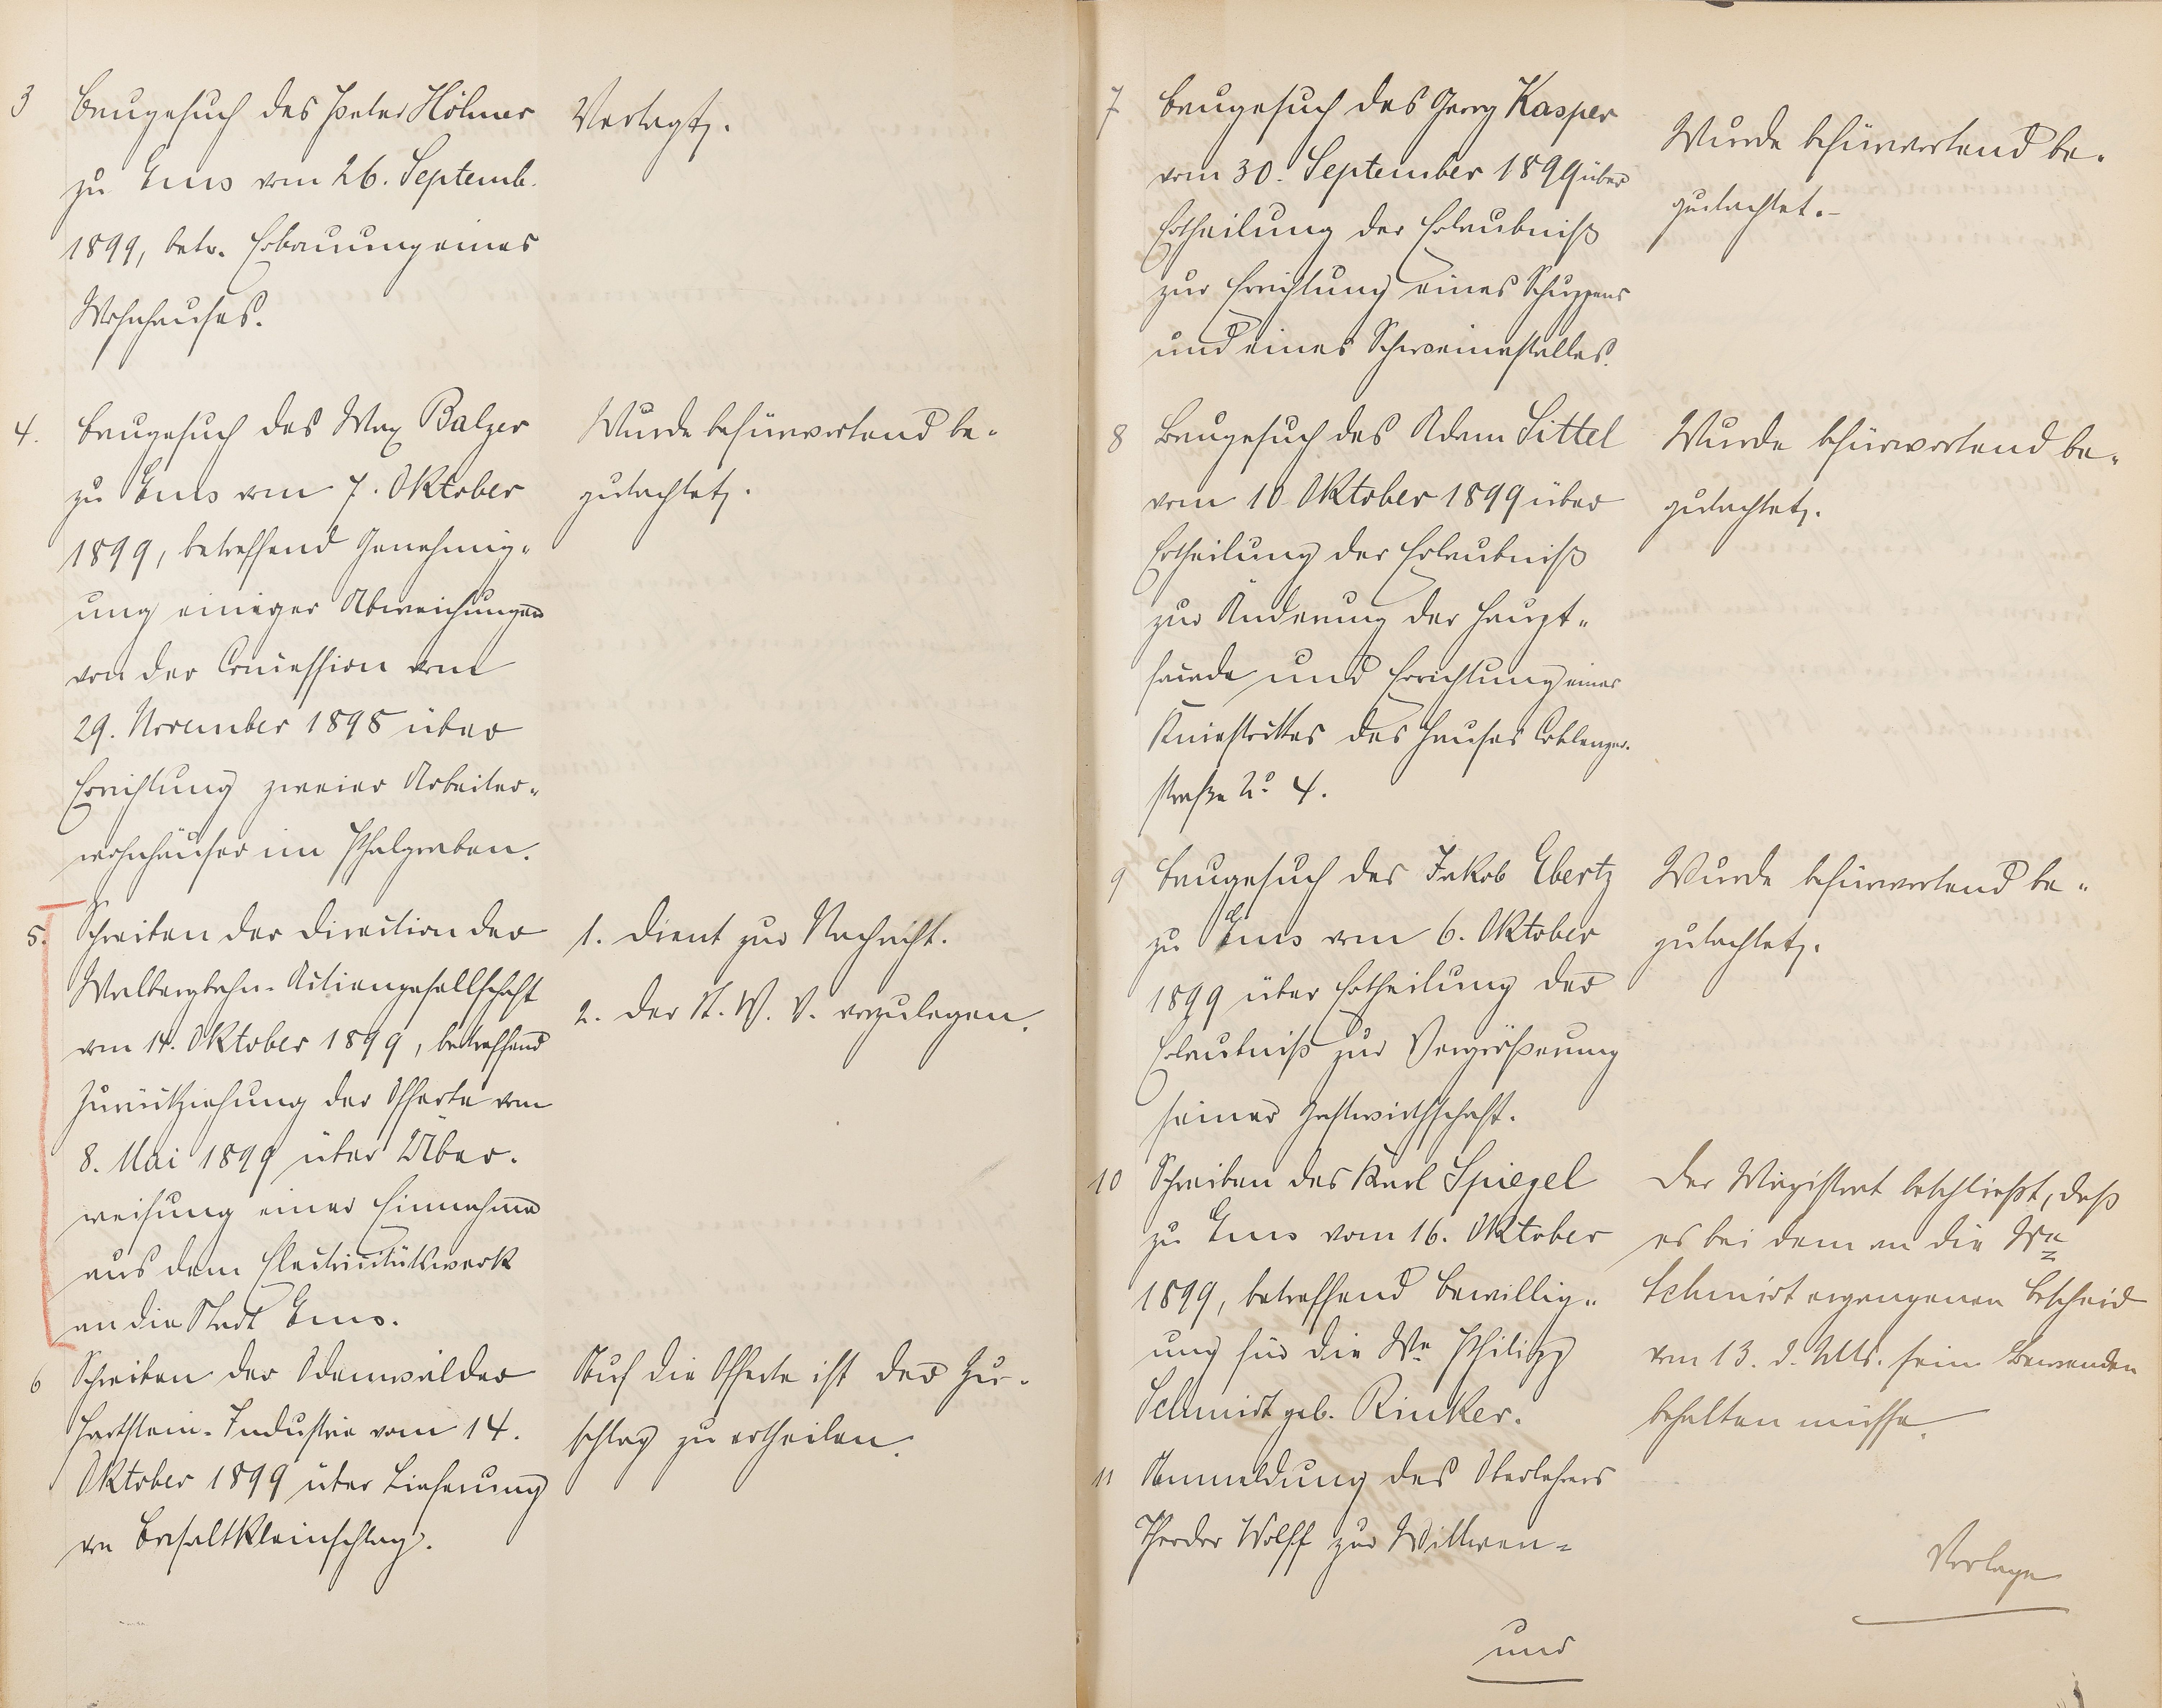 3 Baugesuch des Peter Hölmer
zu Ems vom 26. Septemb.
1899, betr. Erbauung eines
Wohnhauses.
Vertagt.
4. Baugesuch des Max Balzer
zu Ems vom 7. Oktober
1899, betreffend Genehmig-
ung einiger Abweichungen
von der Concession vom
29. November 1898 über
Errichtung zweier Arbeiter-
wohnhäuser im Pfalgraben.
Wurde befürwortend be-
gutachtet.
5. Schreiben der Direction der
Malbergbahn-Actiengesellschaft
vom 14. Oktober 1899, betreffend
Zurückziehung der Offerte vom
8. Mai 1899 über Über-
weisung einer Einnahme
aus dem Electricitätswerk
an die Stadt Ems.
1. Dient zur Nachricht.
2. Der St. V. V. vorzulegen.
6 Schreiben der Odenwälder
Hartstein-Industrie vom 14.
Oktober 1899 über Lieferung
von Basaltkleinschlag.
Auf die Offerte ist der Zu-
schlag zu ertheilen.
7 Baugesuch des Georg Kasper
vom 30. September 1899 über
Ertheilung der Erlaubniß
zur Errichtung eines Schuppens
und eines Schweinestalles.
Wurde befürwortend be-
gutachtet.-
8 Baugesuch des Adam Sittel
vom 10. Oktober 1899 über
Ertheilung der Erlaubniß
zur Änderung der Haupt-
facade und Errichtung eines
Kniestockes des Hauses Coblenzer-
straße No 4.
Wurde befürwortend be-
gutachtet.
9 Baugesuch des Jakob Ebertz
zu Ems vom 6. Oktober
1899 über Ertheilung der
Erlaubniß zur Vergrößerung
seiner Gastwirthschaft.
Wurde befürwortend be-
gutachtet.
10 Schreiben des Karl Spiegel
zu Ems vom 16. Oktober
1899, betreffend Bewillig-
ung für die We Philipp
Schmidt geb. Rinker.
Der Magistrat beschließt, daß
es bei dem an die We
Schmidt ergangenen Bescheid
vom 13. d. Mts. sein Bewenden
behalten müsse.
11 Anmeldung des Oberlehrers
Theodor Wolff zur Wittwen=
und
Vorlage